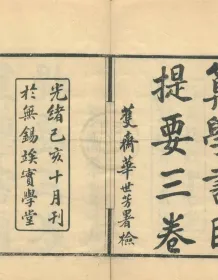 算學書目
提要三卷
齋華世芳署檢
光緒己亥十月刊
於無錫竢實學堂